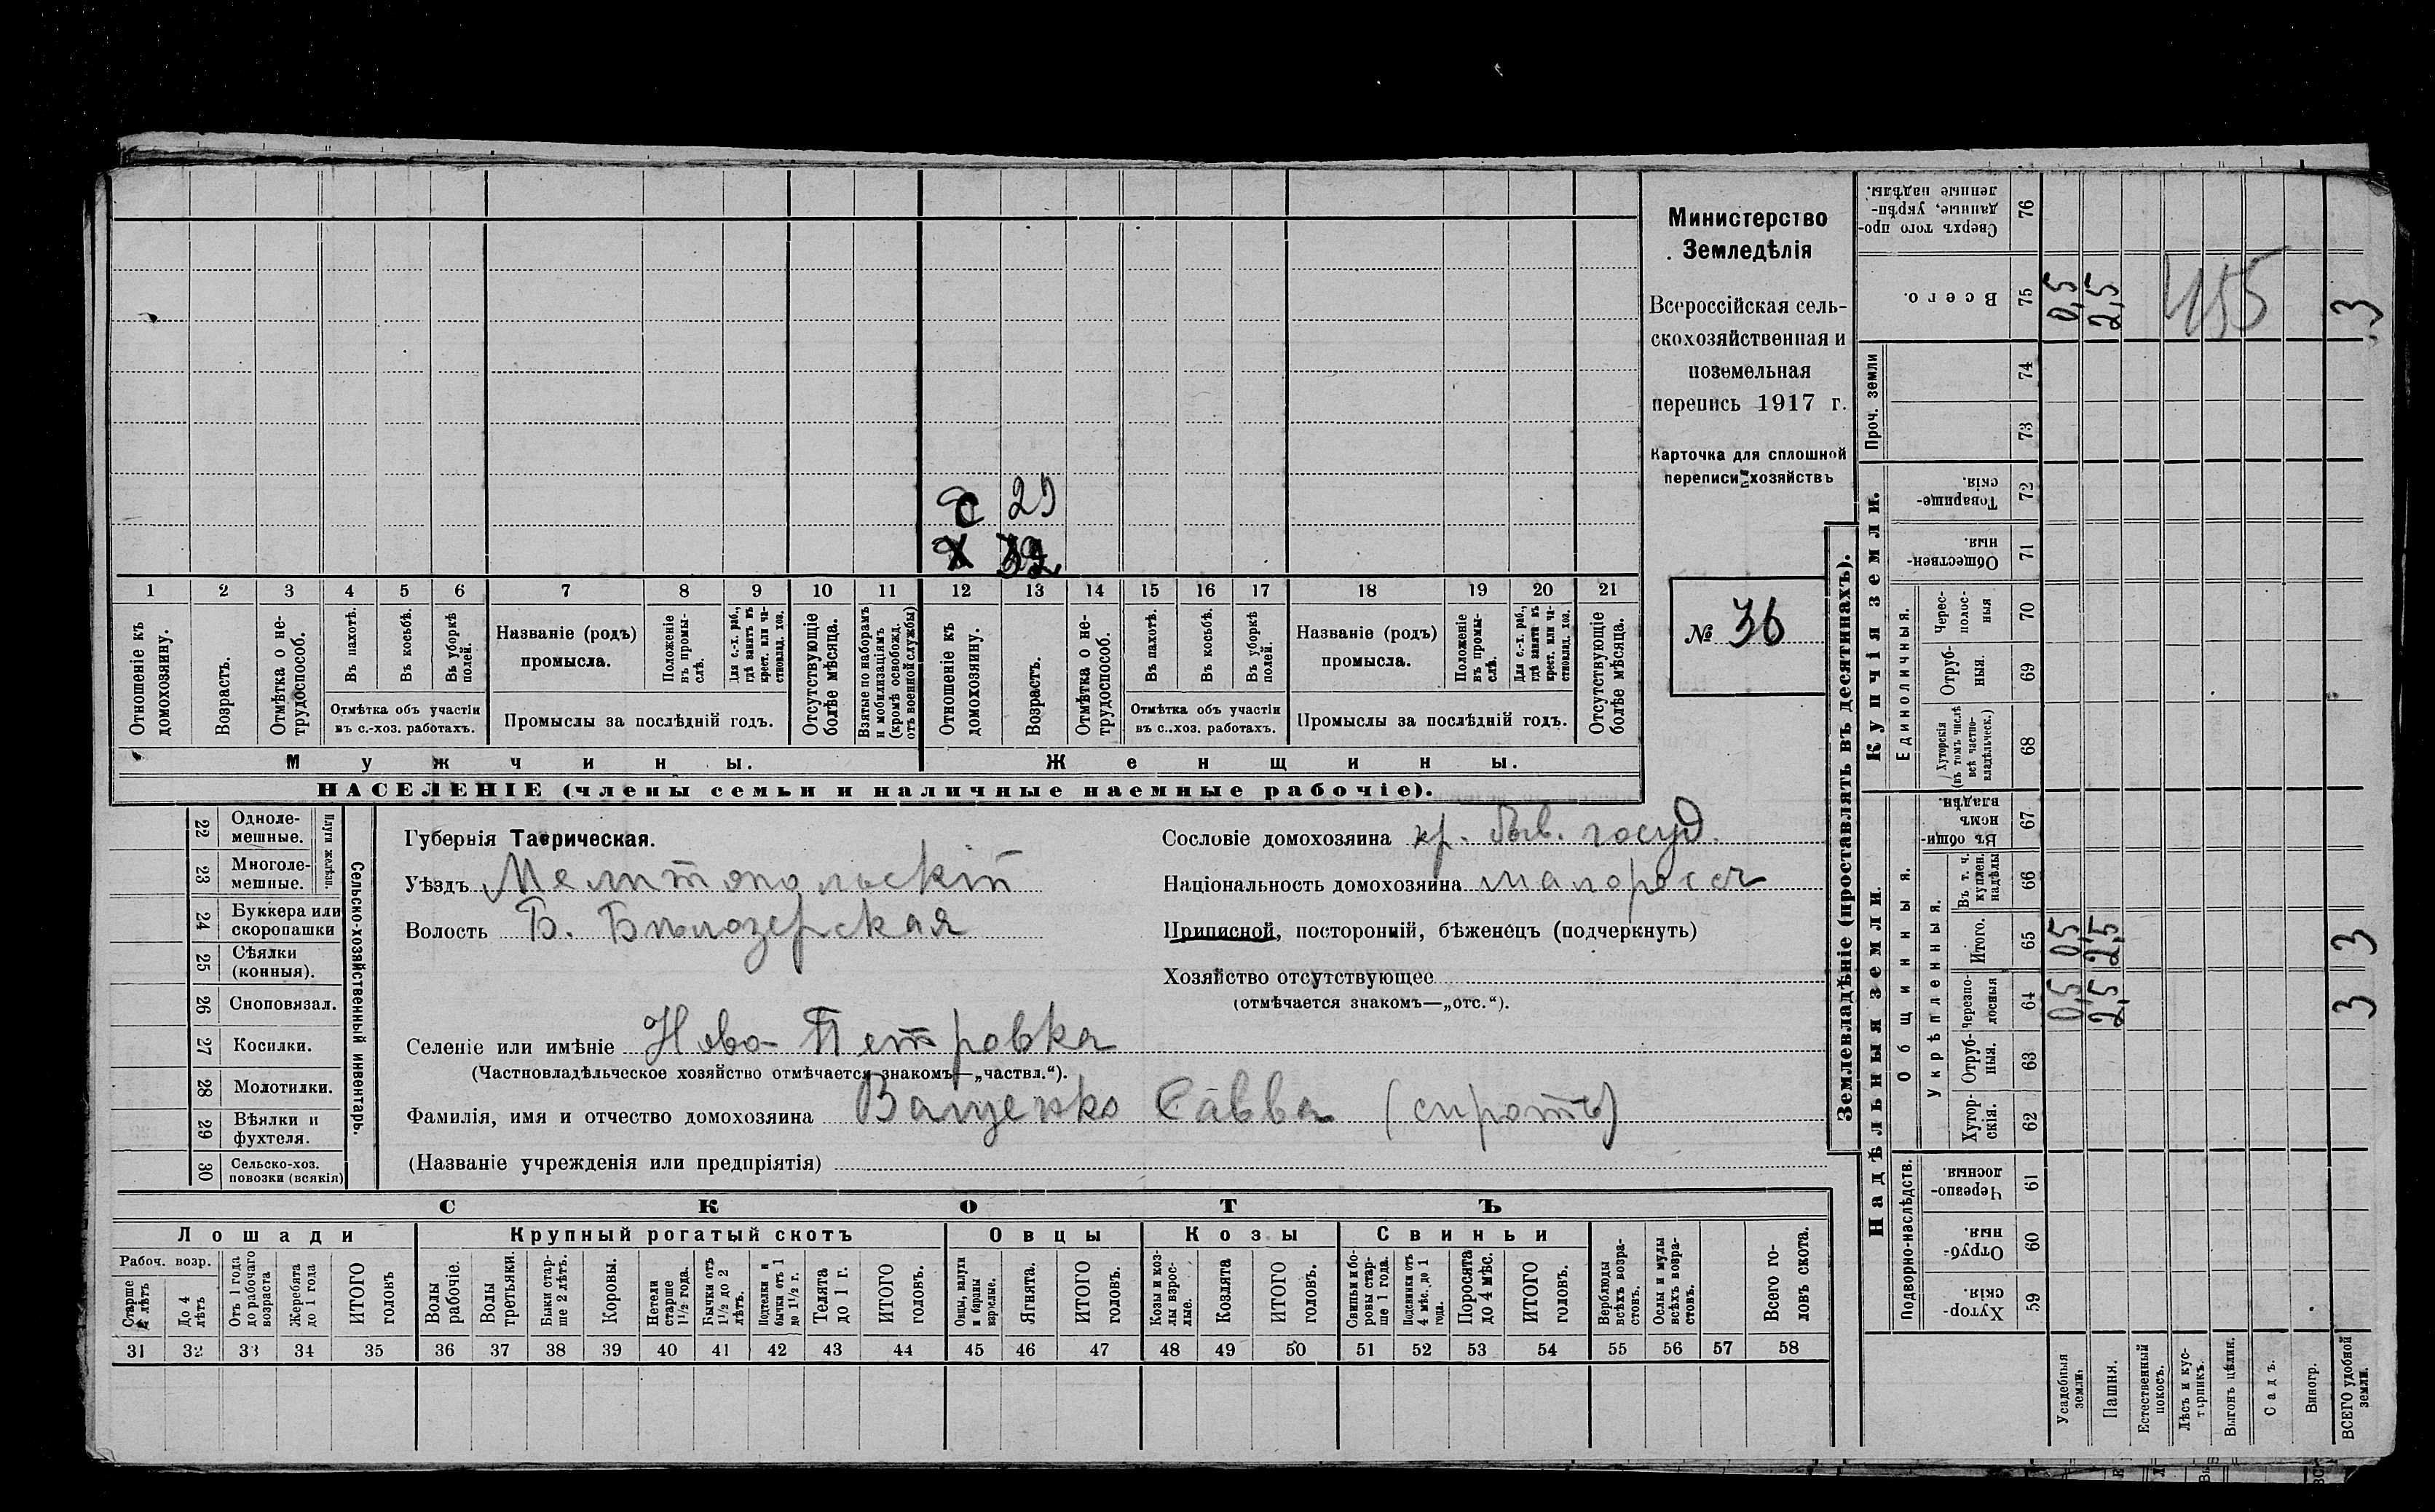 Министерство
Земледѣлія
Всероссійская сель-
скохозяйственная и
поземельная
перепись 1917 г.
Карточка для сплошной
переписи хозяйствъ
№ 36
С 29
1 2 3 4 5 6 7 8 9 10 11 12 13 14 15 16 17 18 19 20 21
Отношеніе къ домохозяину.
Возрастъ.
Отмѣтка о не-трудоспособ.
Въ пахотѣ.
Въ косьбѣ.
Въ уборкѣ полей.
Отмѣтка объ участіи
въ с.-хоз. работахъ.
Названіе (родъ)
промысла.
Положеніе въ промы-слѣ.
Для с.-х. раб., гдѣ занятъ въ крест. или ча-стновлад. хоз.
Промыслы за послѣдній годъ.
Отсутствующіе болѣе мѣсяца.
Взятые по наборамъ и мобилизаціямъ (кромѣ освобожд. отъ военной службы)
Отношеніе къ домохозяину.
Возрастъ.
Отмѣтка о не-трудоспособ.
Въ пахотѣ.
Въ косьбѣ.
Въ уборкѣ полей.
Отмѣтка объ участіи
въ с.-хоз. работахъ.
Названіе (родъ)
промысла.
Положеніе въ промы-слѣ.
Для с.-х. раб., гдѣ занята въ крест. или ча-стновлад. хоз.
Промыслы за послѣдній годъ.
Отсутствующіе болѣе мѣсяца.
Мужчины. Женщины.
НАСЕЛЕНІЕ (члены семьи и наличные наемные рабочіе).
22 Одноле-мешные.
23 Многоле-мешные.
Плуги желѣзн.
24 Буккера или скоропашки
25 Сѣялки (конныя).
26 Сноповязал.
27 Косилки.
28 Молотилки.
29 Вѣялки и фухтеля.
30 Сельско-хоз. повозки (всякія)
Сельско-хозяйственный инвентарь.
Губернія Таврическая.
Уѣздъ Мелитопольскій
Волость Б. Бѣлозерская
Сословіе домохозяина кр. быв. госуд.
Національность домохозяина малороссъ
Приписной, посторонній, бѣженецъ (подчеркнуть)
Хозяйство отсутствующее
(отмѣчается знакомъ—„отс.“).
Селеніе или имѣніе Ново-Петровка
(Частновладѣльческое хозяйство отмѣчается знакомъ—„частвл.“).
Фамилія, имя и отчество домохозяина Ващенко Савва (сироты)
(Названіе учрежденія или предпріятія)
СКОТЪ
Лошади Крупный рогатый скотъ Овцы Козы Свиньи
Рабоч. возр.
Старше 4 лѣтъ
До 4 лѣтъ
Отъ 1 года до рабочаго возраста
Жеребята до 1 года
ИТОГО головъ
Волы рабочіе.
Волы третьяки.
Быки стар-ше 2 лѣтъ.
Коровы.
Нетели старше 1½ года.
Бычки отъ 1½ до 2 лѣтъ.
Подтелки и бычки отъ 1 до 1½ г.
Телята до 1 г.
ИТОГО головъ.
Овцы, валухи и бараны взрослые.
Ягнята.
ИТОГО головъ.
Козы и коз-лы взрос-лые.
Козлята
ИТОГО головъ.
Свиньи и бо-ровы стар-ше 1 года.
Подсвинки отъ 4 мѣс. до 1 года.
Поросята до 4 мѣс.
ИТОГО головъ.
Верблюды всѣхъ возра-стовъ.
Ослы и мулы всѣхъ возра-стовъ.
Всего го-ловъ скота.
31 32 33 34 35 36 37 38 39 40 41 42 43 44 45 46 47 48 49 50 51 52 53 54 55 56 57 58
Землевладѣніе (проставлять въ десятинахъ).
Купчія земли.
Надѣльныя земли.
Сверхъ того про-данные, укрѣп-ленные надѣлы. 76
Всего. 75 0,5 2,5 3
155
Проч. земли 74 73
Товарище-скія. 72
Обществен-ныя. 71
Единоличныя.
Черес-полос-ныя 70
Отруб-ныя. 69
Хуторскія (въ томъ числѣ всѣ частно-владѣльческ.) 68
Общинныя.
Въ общи-номъ владѣн. 67
Укрѣпленныя.
Въ т. ч. куплен. надѣлы 66
Итого. 65 0,5 2,5 3
Черезпо-лосныя 64 0,5 2,5 3
Отруб-ныя. 63
Хутор-скія. 62
Подворно-наслѣдств.
Черезпо-лосныя 61
Отруб-ныя. 60
Хутор-скія. 59
Усадебныя земли.
Пашня.
Естественный покосъ.
Лѣсъ и кус-тарникъ.
Выгонъ цѣлин.
Садъ.
Виногр.
ВСЕГО удобной земли.